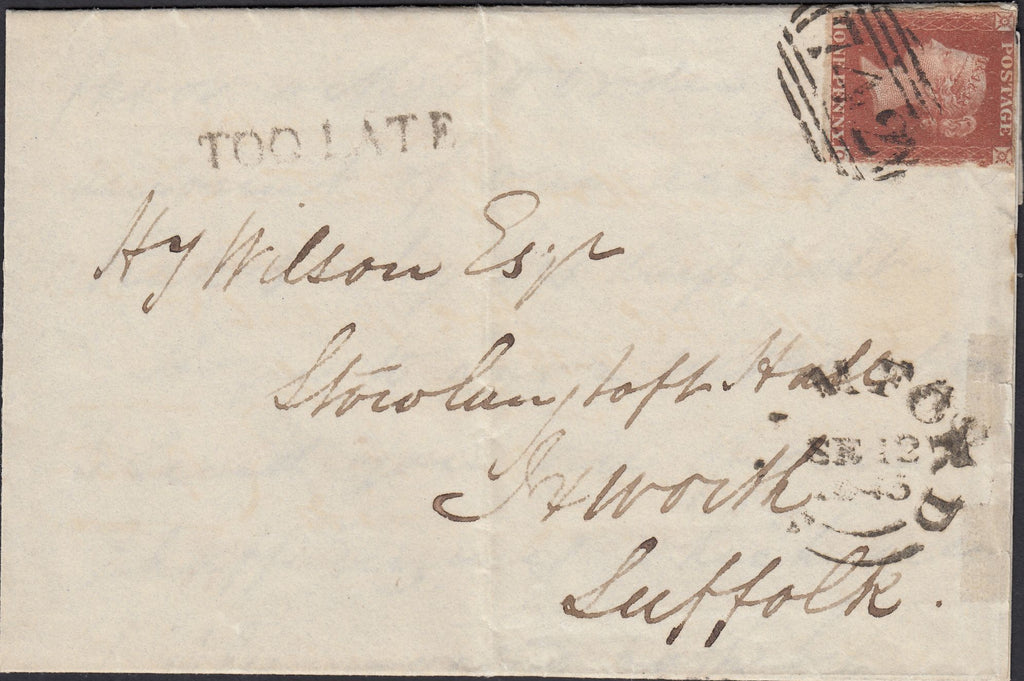 POSTAGE
ONE PENNY
TOO LATE
Hy Wilson Esqr
Stowlangtoft Hall
Ixworth
Suffolk.
SE 12